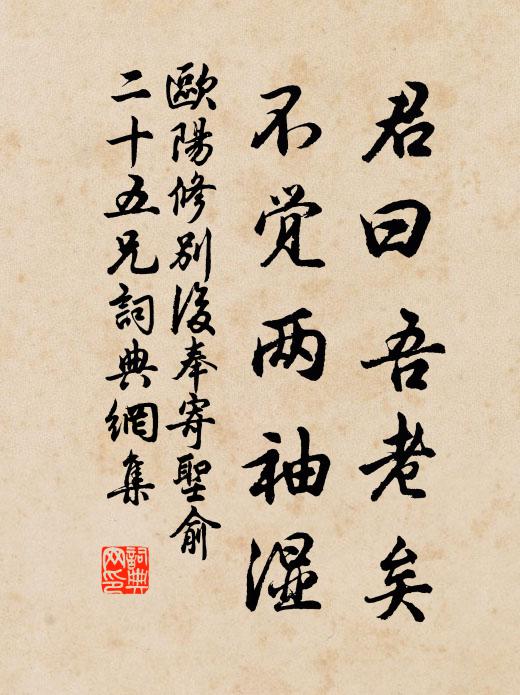 君曰吾老矣
不觉两袖湿
歐陽修别後奉寄聖俞
二十五兄詞典網集
詞典
网印